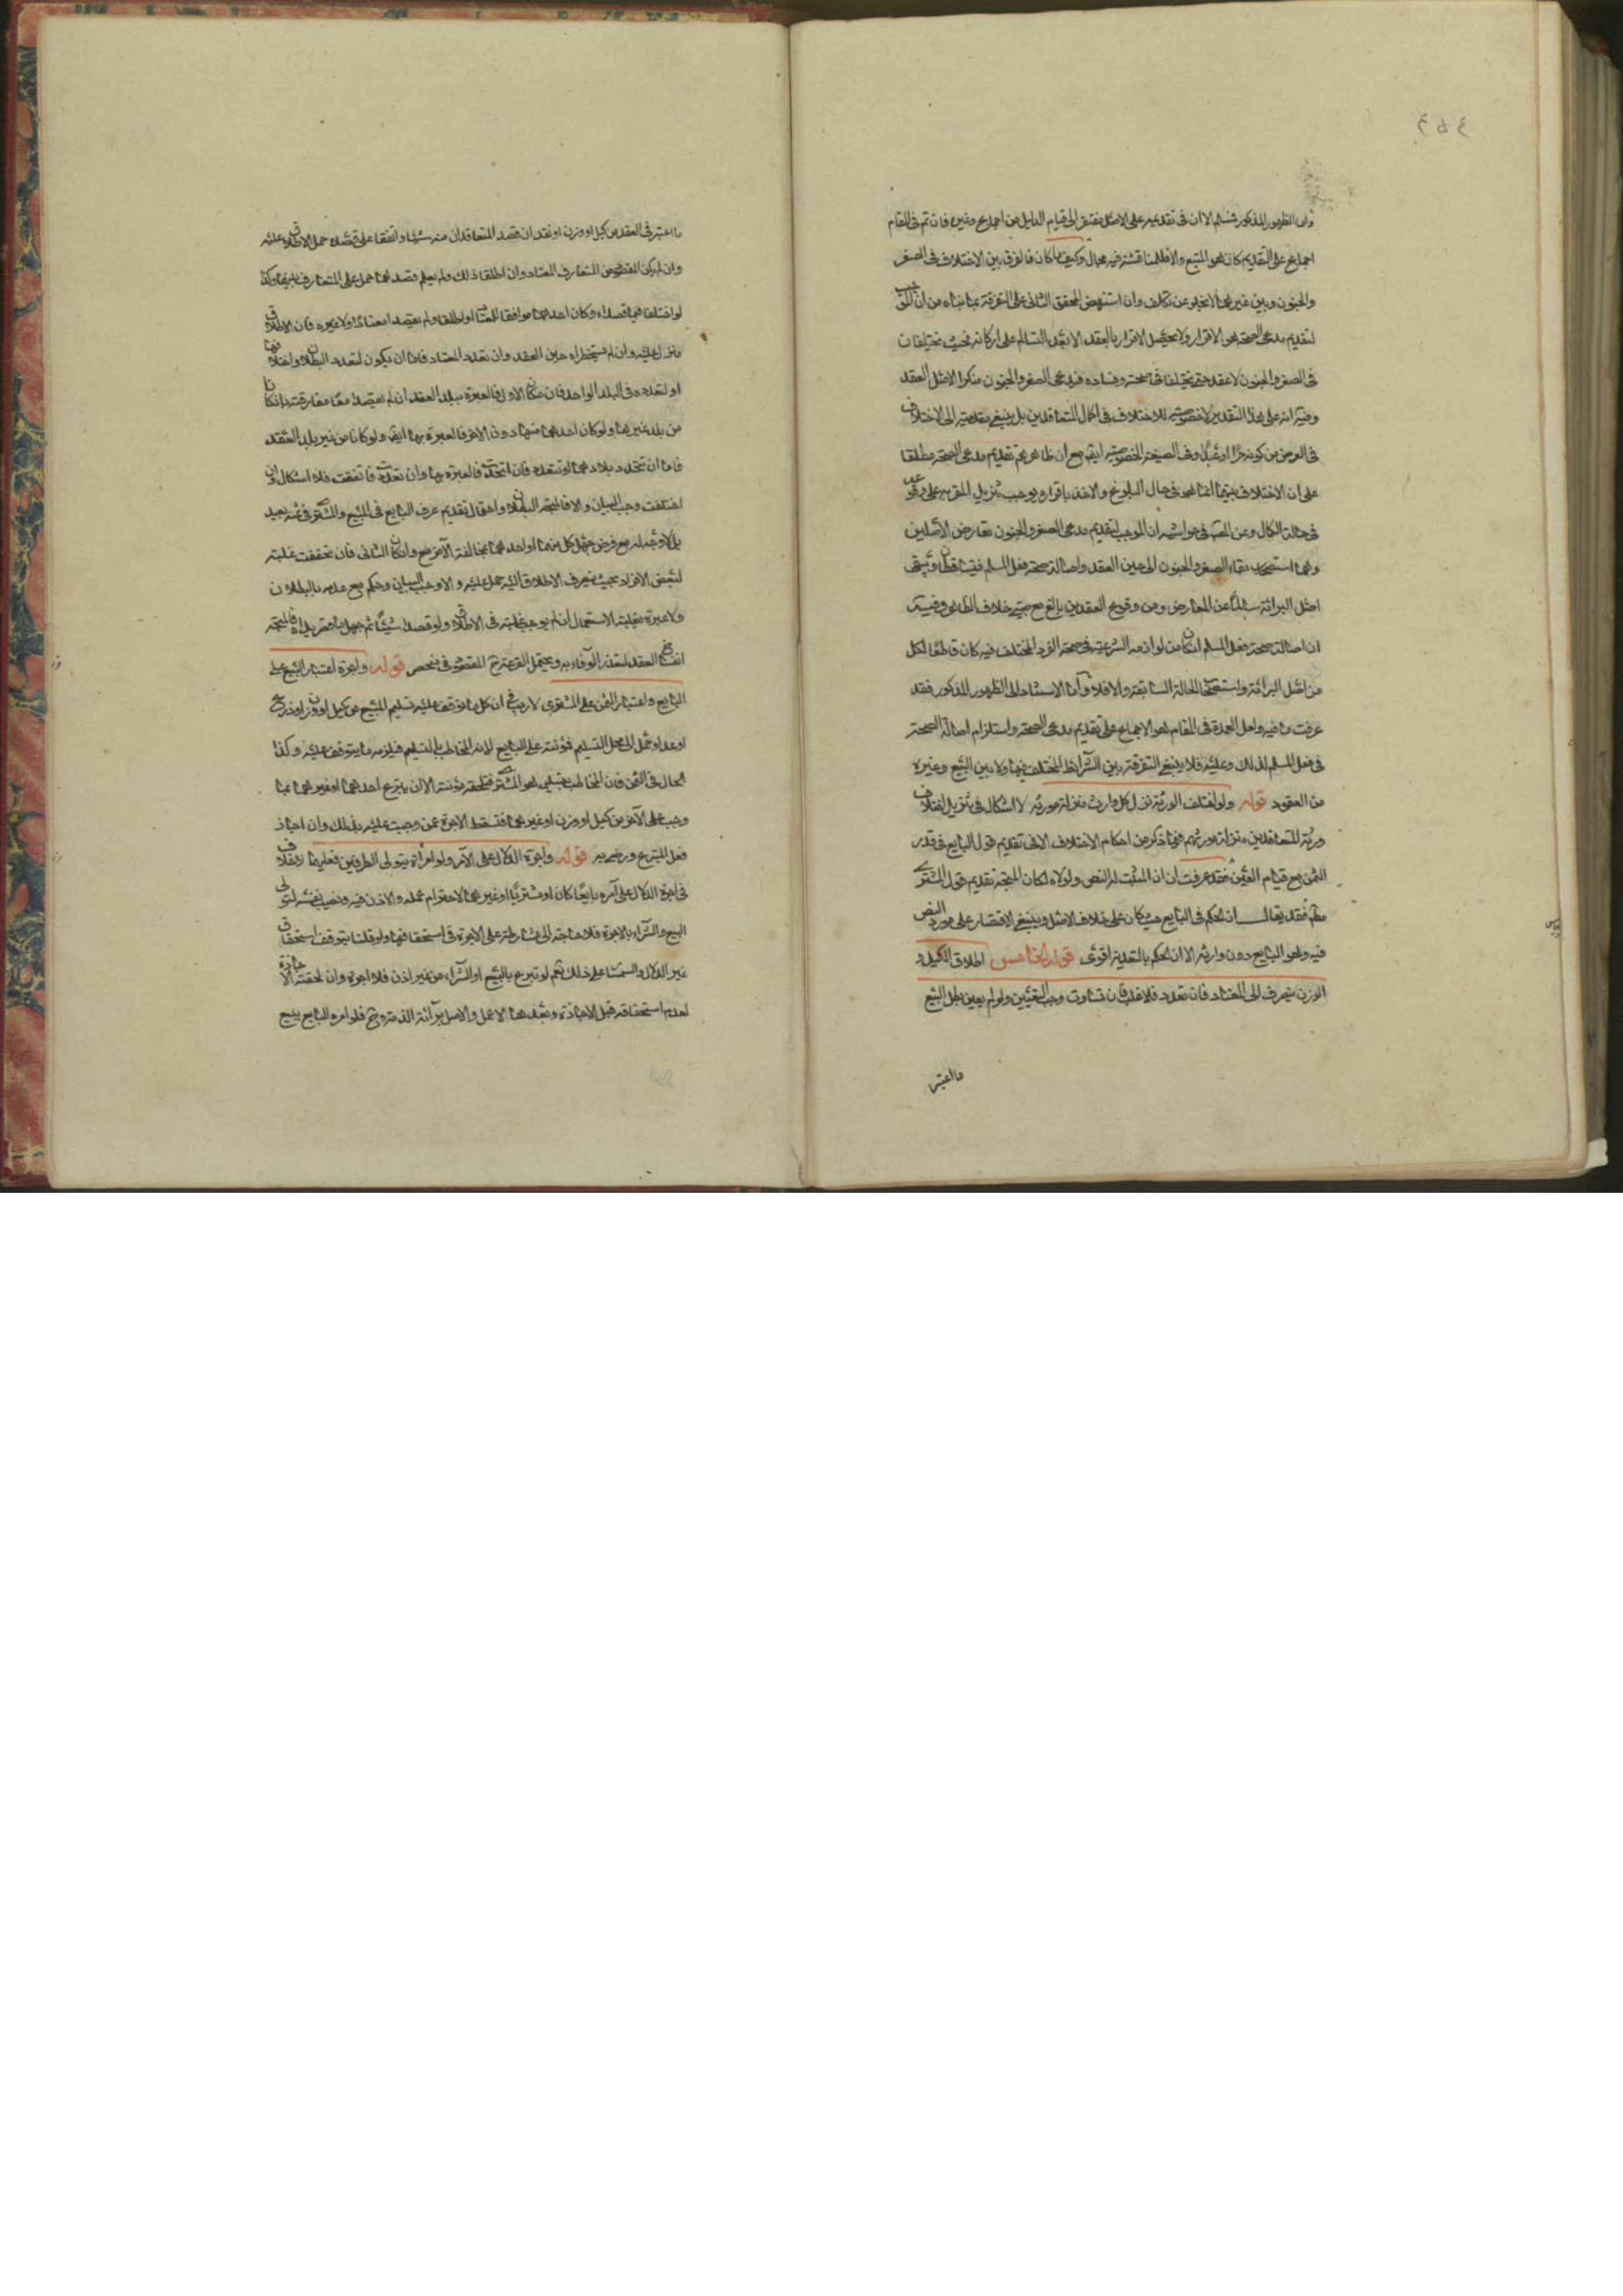 واما الظهور المذكور فمسلم الا ان فى تقديمه على الاصل مفتقر الى قيام الدليل من اجماع وغيره فان تم فى المقام
اجماع على التقديم كان هو المتبع والا فللمناقشة فيه مجال وكيف ما كان فالفرق بين الاختلاف فى الصغر
والجنون وبين غيرهما لا يخلو عن تكلف وان استنهض المحقق الثانى على التفرقة بما بناه من ان الموجب
لتقديم مدعى الصحة هو الاقرار ولا يحصل الاقرار بالعقد الا بعد التسالم على اركانه بحيث يختلفان
فى الصغر والجنون لا عقد حتى يختلفا فى صحته وفساده فمدعى الصغر والجنون منكر الاصل العقد
وفيه انه على هذا التقدير لا خصوصية للاختلاف فى كمال المتعاقدين بل ينبغى تعديته الى الاختلاف
فى العوض من كونه حرا او عبدا وفى الصيغة الخصوصية ايضا مع ان ظاهرهم تقديم مدعى الصحة مطلقا
على ان الاختلاف بينهما انما هو فى حال البلوغ والاخذ باقراره يوجب تنزيل المقر به على وقوعه
فى حالة الكمال وعن المص فى حواشيه ان الموجب لتقديم مدعى الصغر والجنون تعارض الاصلين
وهما استصحاب بقاء الصغر والجنون الى حين العقد واصالة صحة فعل المسلم فيتساقطان ويبقى
اصل البرائة سالما عن المعارض ومن وقوع العقد من بالغ مع صبى خلاف الظاهر وفيه
ان اصالة صحة فعل المسلم ان كان من لوازمه الشرعية فى صحة الفرد المختلف فيه كان قاطعا لكل
من اصل البرائة واستصحاب الحالة السابقة والا فلا واما الاستناد الى الظهور المذكور فقد
عرفت ما فيه ولعل العمدة فى المقام هو الاجماع على تقديم مدعى الصحة واستلزام اصالة الصحة
فى فعل المسلم لذلك وعليه فلا ينبغى التفرقة بين الشرائط المختلف فيها ولا بين البيع وغيره
من العقود قوله ولو اختلف الورثة نزل كل وارث منزلة مورثه لا اشكال فى تنزيل اختلاف
ورثة المتعاقدين منزلة مورثهم فيما ذكر من احكام الاختلاف الا فى تقديم قول البايع فى قدر
الثمن مع قيام العين فقد عرفت ان ان المثبت له النص ولولاه لكان المتجه تقديم قول المشترى
مطم فقد يقال ان الحكم فى البايع حيث كان على خلاف الاصل وينبغى الاقتصار على مورد النص
فيه وهو البايع دون وارثه الا ان الحكم بالتعدية اقوى قوله الخامس اطلاق الكيل و
الوزن ينصرف الى المعتاد فان تعدد فالاغلب فان تساوت وجب التعيين ولو لم يعين بطل البيع
ما اعتبر
ما اعتبر فى العقد من كيل او وزن او نقد ان قصد المتعاقدان منه شيئا واتفقا على قصده حمل الاطلاق عليه
وان لم يكن المقصود من المتعارف المعتاد وان اطلقا ذلك ولم يعلم قصدهما حمل على المتعارف بينهما وكذا
لو اختلفا فيما قصداه وكان احدهما موافقا للمعتاد او اطلقا ولم يقصدا معتادا ولا غيره فان الاطلاق
منزل عليه وان لم يستحضراه حين العقد وان تعدد المعتاد فاما ان يكون لتعدد البلدان واختلافها
او لتعدده فى البلد الواحد فان كان الاول فالعبرة ببلد العقد ان لم يقصدا معا مفارقته بان كانا
من بلد غيرها ولو كان احدهما منها دون الاخر فالعبرة بها ايضا ولو كانا من غير بلد العقد
فاما ان تتحد بلادهما او تتعدد فان اتحدت فالعبرة بها وان تعددت فاتفقت فلا اشكال وان
اختلفت وجب البيان والا فالمتجه البطلان واحتمال تقديم عرف البايع فى المبيع والمشترى فى ثمنه بعيد
بل لا وجه له مع فرض جهل كل منهما او احدهما بمخالفة الاخر مع وان كان الثانى فان تحققت غلبة
لبعض الافراد بحيث ينصرف الاطلاق اليه حمل عليه والا وجب البيان وحكم مع عدمه بالبطلان
ولا عبرة بغلبة الاستعمال ان لم يوجب غلبته فى الاطلاق ولو قصدا شيئا ثم جهل ما قصداه فالمتجه
انفساخ العقد لتعذر الوفاء به ويحتمل القرعة قوله واجرة اعتبار المبيع على
البايع واعتبار الثمن على المشترى لا ريب فى ان كل ما توقف عليه تسليم المبيع من كيل او وزن او ذرع
او عد او حمل الى محل التسليم فمؤنته على البايع لانه المخاطب بالتسليم فيلزمه ما يتوقف عليه وكذا
الحال فى الثمن فان المخاطب بتسليمه هو المشترى فتلحقه مؤنته الا ان يتبرع احدهما او غيرهما بما
وجب على الاخر من كيل او وزن او غيرهما فتسقط الاجرة عمن وجبت عليه بذلك وان اجاز
فعل المتبرع ورضى به قوله واجرة الدلال على الامر ولو امراه بتولى الطرفين فعليهما لا خلاف
فى اجرة الدلال على آمره بايعا كان او مشتريا او غيرهما لاحترام عمله والاذن فيه ونصب نفسه لتولى
البيع والشراء بالاجرة فلا حاجة الى مشارطته على الاجرة فى استحقاقها ولو قلنا بتوقف استحقاق
غير الدلال والسمسار على ذلك نعم لو تبرع بالبيع او الشراء من غير اذن فلا اجرة وان لحقته الاجازة
لعدم استحقاقه قبل الاجازة وبعدها لا عمل والاصل برآئة الذمة وح فلو امره البايع ببيع